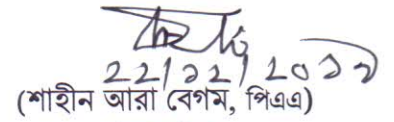 ২২/১২/২০১৯
(শাহীন আরা বেগম, পিএএ)